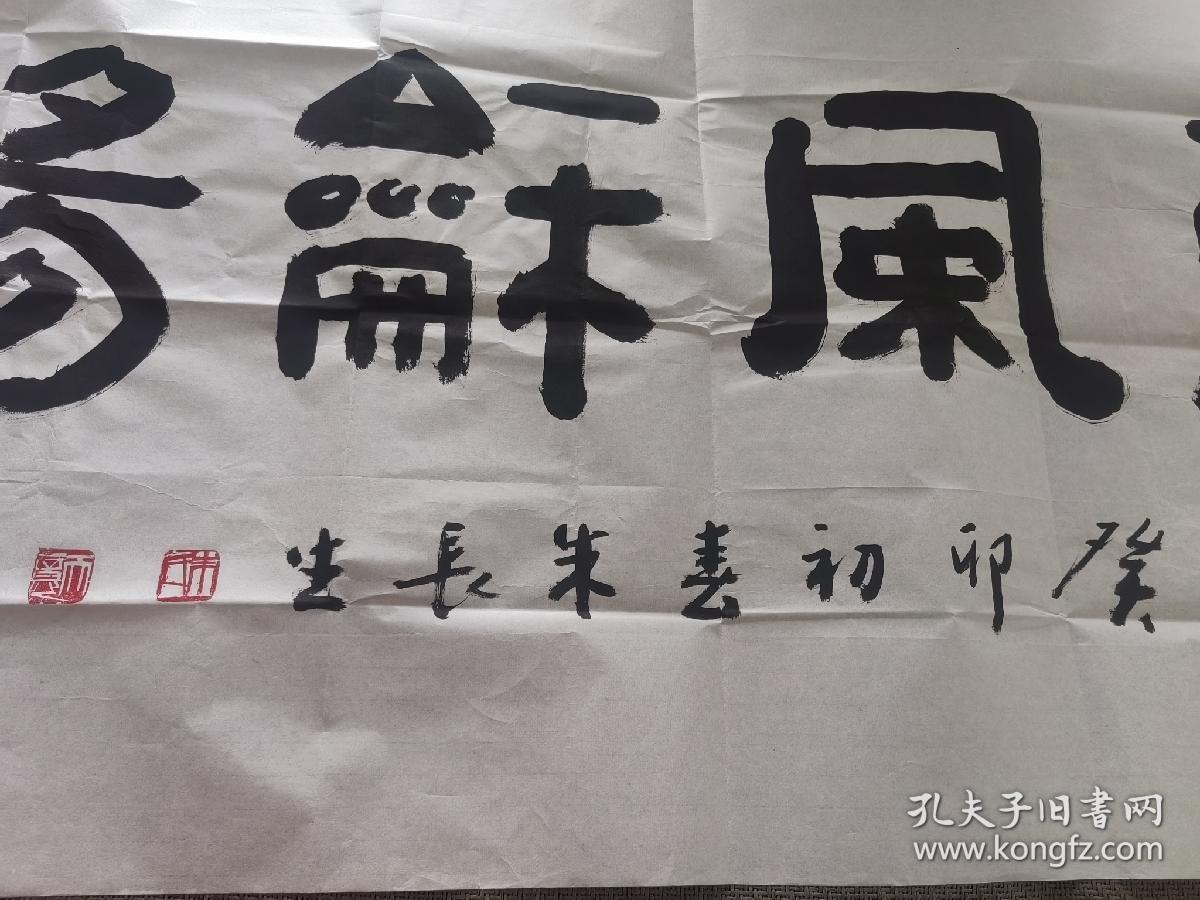 風龢
癸卯初春朱長生
孔夫子旧书网
www.kongfz.com